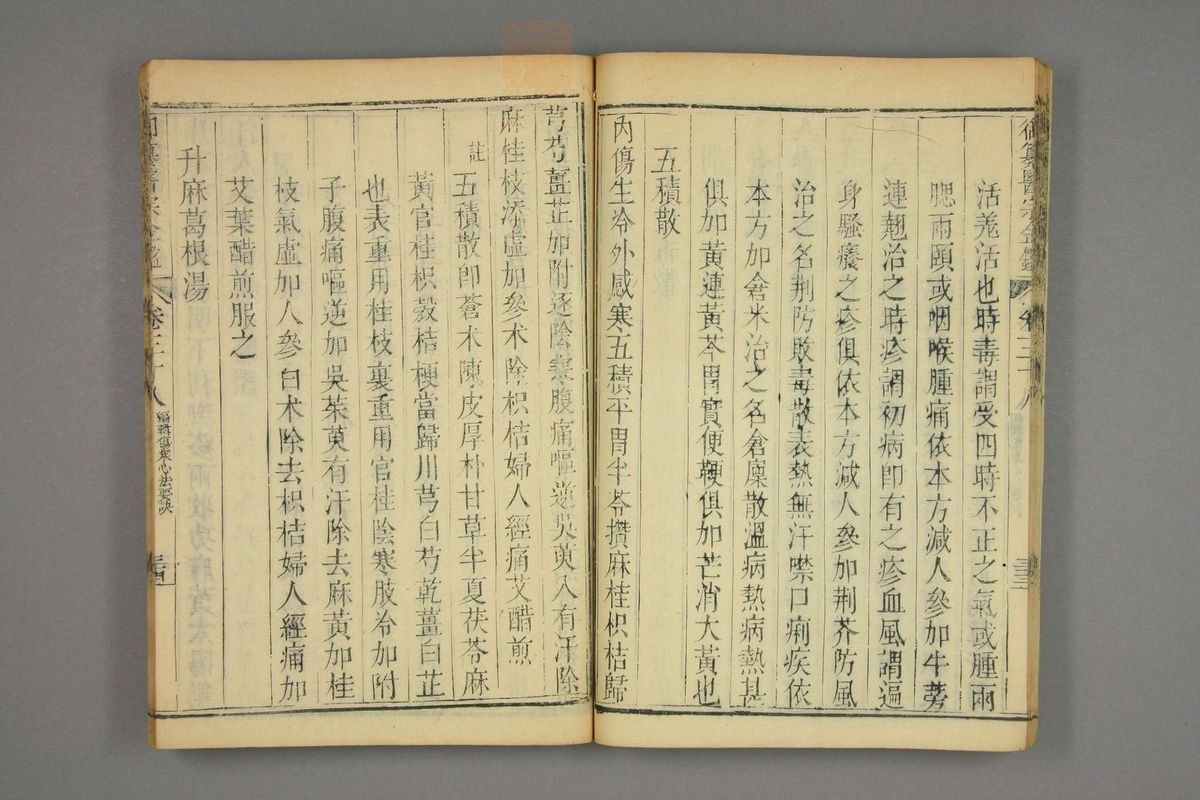 御纂醫宗金鑑 卷三十八
活羗活也時毒謂受四時不正之氣或腫兩
腮兩頤或咽喉腫痛依本方減人參加牛蒡
連翹治之時疹謂初病即有之疹血風謂遍
身騷癢之疹俱依本方減人參加荆芥防風
治之名荆防敗毒散表熱無汗噤口痢疾依
本方加倉米治之名倉廩散溫病熱病熱甚
俱加黃連黃芩胃實便鞕俱加芒消大黃也
五積散
內傷生冷外感寒五積平胃半苓攢麻桂枳桔歸
芎芍薑芷加附逐陰寒腹痛嘔逆吳萸入有汗除
麻桂枝添虛加參术除枳桔婦人經痛艾醋煎
註
五積散卽蒼术陳皮厚朴甘草半夏茯苓麻
黃官桂枳殼桔梗當歸川芎白芍乾薑白芷
也表重用桂枝裏重用官桂陰寒肢冷加附
子腹痛嘔逆加吳茱萸有汗除去麻黃加桂
枝氣虛加人參白术除去枳桔婦人經痛加
艾葉醋煎服之
升麻葛根湯
纂醫宗金鑑 卷三十八 編輯傷寒心法要訣